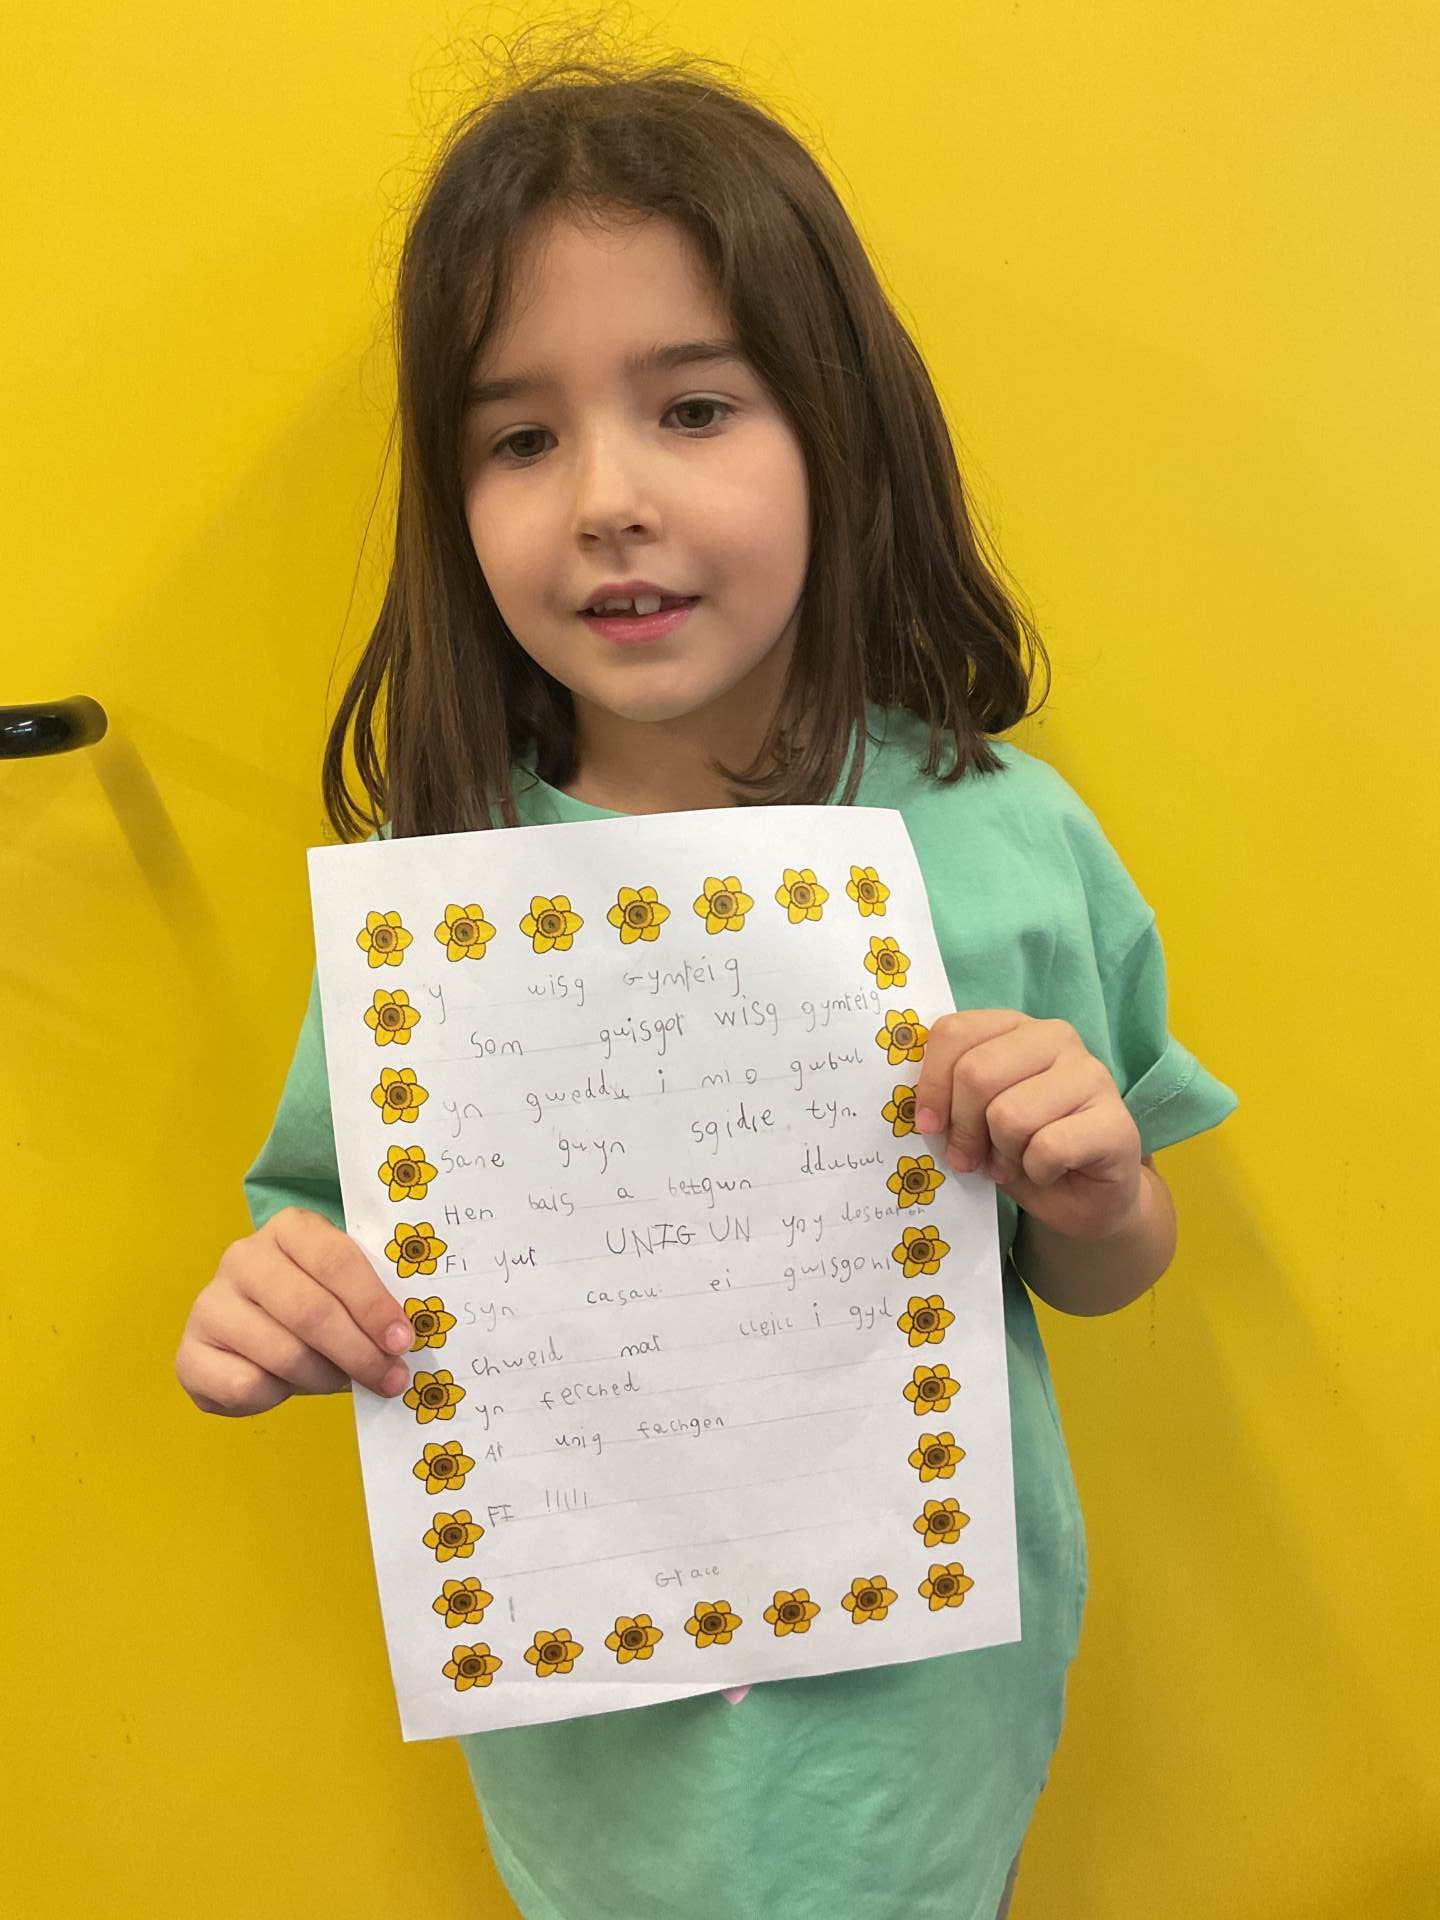 Y wisg Gymreig
Som gwisgor wisg gymreig
yn gweddu i mi o gwbwl
Sane gwyn sgidie tyn.
Hen bais a betgwn ddwbwl
Fi ywr UNIG UN yn y dosbarth
Syn casau ei gwisgoni
Chweid mar lleill i gyd
yn ferched
Ar unig fachgen
FI !!!!!
Grace